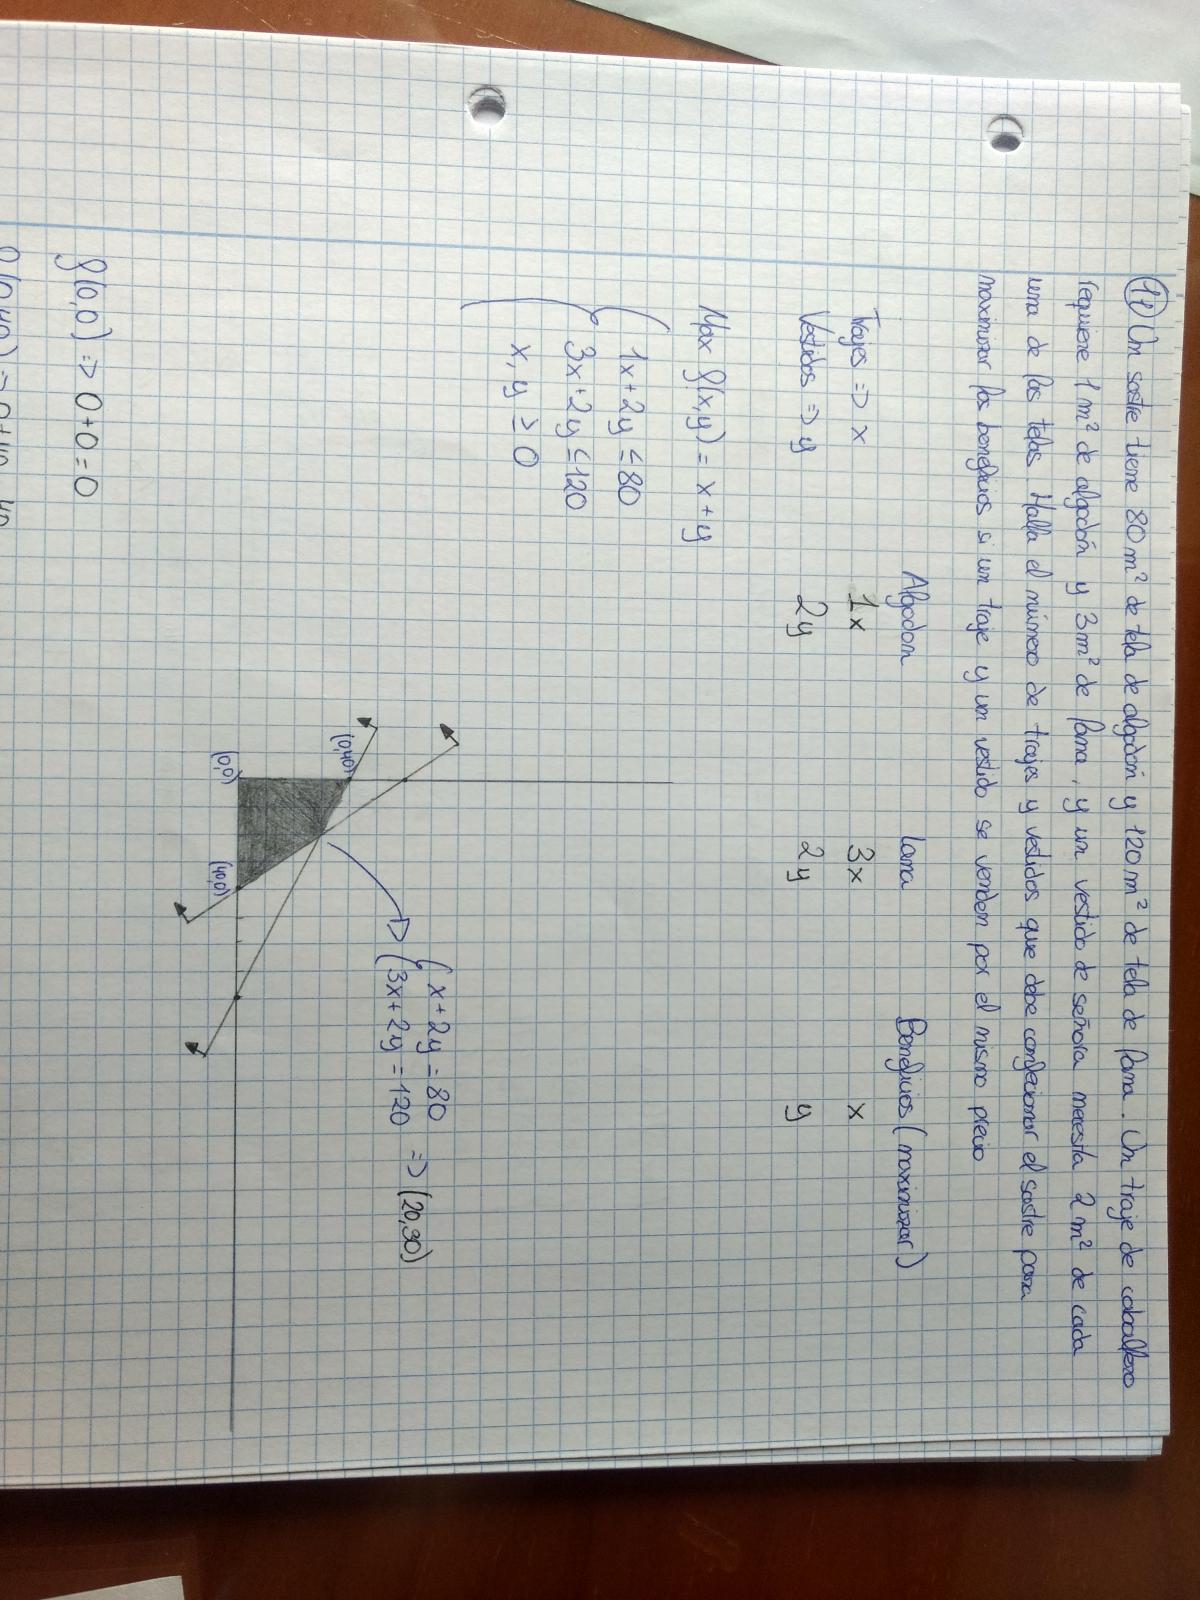 11) Un sastre tiene 80 m² de tela de algodón y 120 m² de tela de lana. Un traje de caballero
requiere 1 m² de algodón y 3 m² de lana, y un vestido de señora necesita 2 m² de cada
una de las telas. Halla el número de trajes y vestidos que debe confeccionar el sastre para
maximizar los beneficios si un traje y un vestido se venden por el mismo precio
Algodon lana Beneficios (maximizar)
Trajes => x 1x 3x x
Vestidos => y 2y 2y y
Max f(x,y) = x + y
1x + 2y ≤ 80
3x + 2y ≤ 120
x, y ≥ 0
x + 2y = 80
3x + 2y = 120 => (20,30)
(0,40)
(0,0) (40,0)
f(0,0) => 0+0 = 0